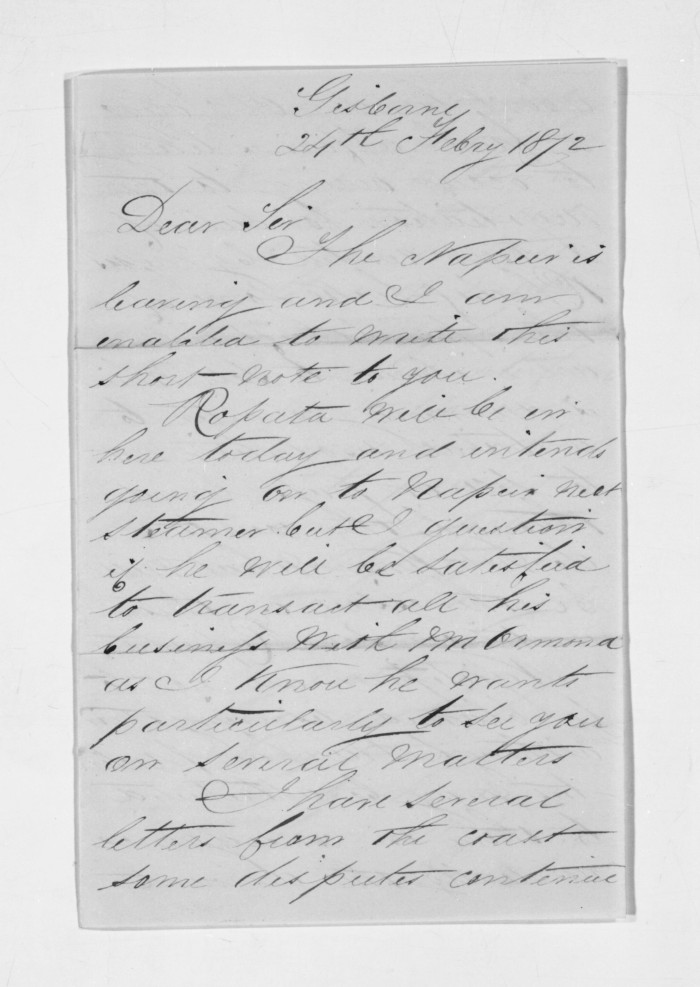 Gisborne
24th Febry 1872
Dear Sir
The Napier is
leaving and I am
enabled to write this
short note to you.
Ropata will be in
here today and intends
going on to Napier next
steamer but I question
if he will be satisfied
to transact all his
business with Mr Ormond
as I know he wants
particularly to see you
on several matters
I have several
letters from the coast
some disputes continue